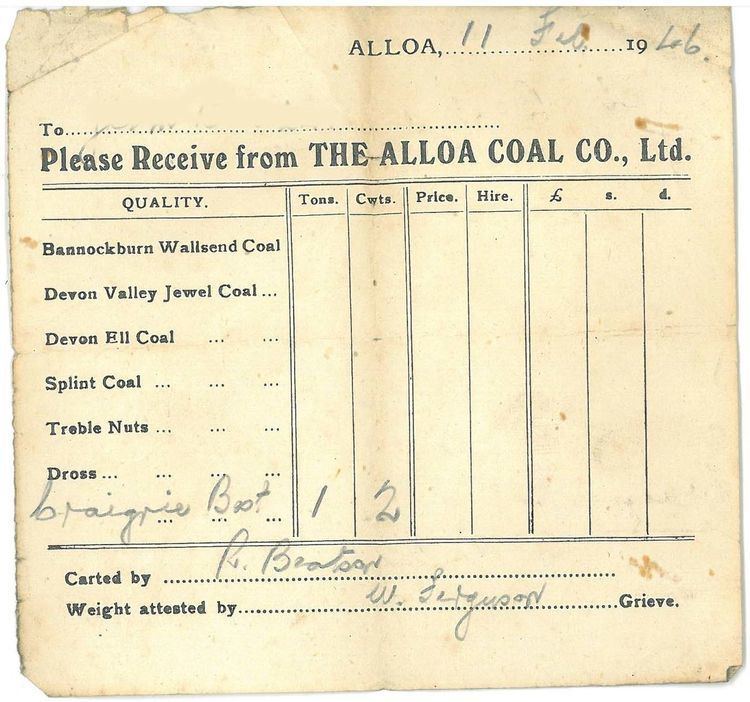 ALLOA, 11 Feb 1946.
To
Please Receive from THE ALLOA COAL CO., Ltd.
QUALITY. Tons. Cwts. Price. Hire. £ s. d.
Bannockburn Wallsend Coal
Devon Valley Jewel Coal ...
Devon Ell Coal ... ...
Splint Coal ... ... ...
Treble Nuts ... ... ...
Dross ... ... ... ...
Craigrie Best 1 2
Carted by R. Beatson
Weight attested by W. Ferguson Grieve.